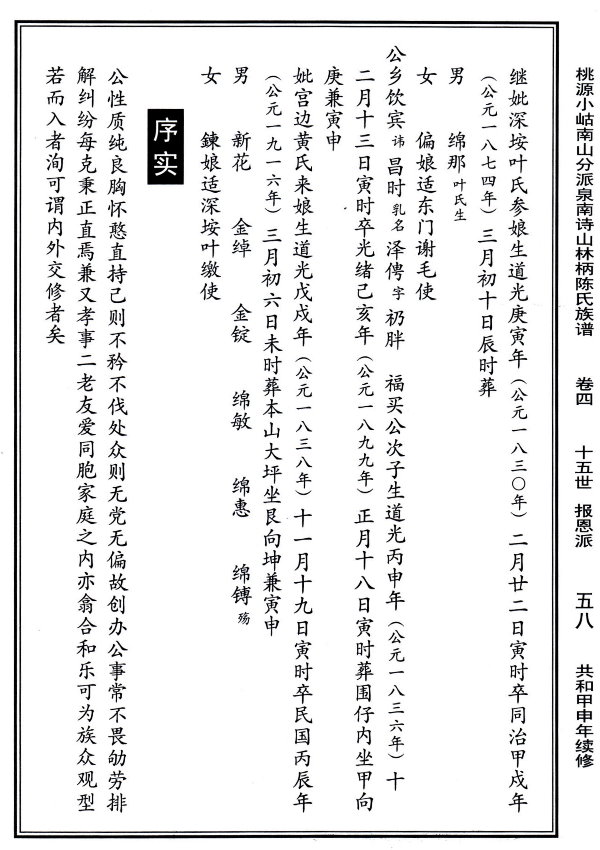 桃源小岵南山分派泉南诗山林柄陈氏族谱 卷四 十五世 报恩派 五八 共和甲申年续修
继妣深垵叶氏参娘生道光庚寅年（公元一八三〇年）二月廿二日寅时卒同治甲戍年
（公元一八七四年）三月初十日辰时葬
男 绵那 叶氏生
女 偏娘适东门谢毛使
公乡饮宾 讳 昌时 乳名 泽俜 字 礽胖 福买公次子生道光丙申年（公元一八三六年）十
二月十三日寅时卒光绪己亥年（公元一八九九年）正月十八日寅时葬围仔内坐甲向
庚兼寅申
妣宫边黄氏来娘生道光戊戌年（公元一八三八年）十一月十九日寅时卒民国丙辰年
（公元一九一六年）三月初六日未时葬本山大坪坐艮向坤兼寅申
男 新花 金绰 金锭 绵敏 绵惠 绵镈 殇
女 鍊娘适深垵叶缴使
序实
公性质纯良胸怀憨直持己则不矜不伐处众则无党无偏故创办公事常不畏劬劳排
解纠纷每克秉正直焉兼又孝事二老友爱同胞家庭之内亦翕合和乐可为族众观型
若而入者洵可谓内外交修者矣